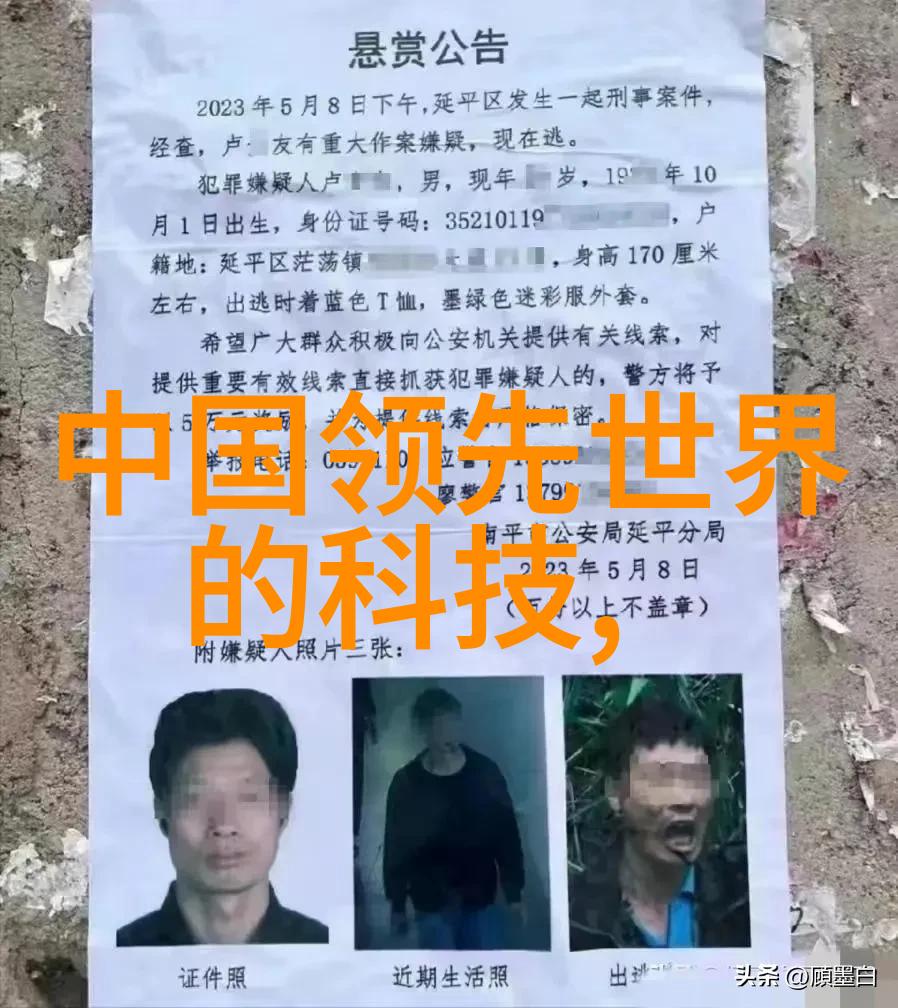 悬赏公告
2023年5月8日下午,延平区发生一起刑事案件,
经查,卢 友有重大作案嫌疑,现在逃。
犯罪嫌疑人卢 ,男,现年 岁,19 年10
月1日出生,身份证号码:35210119 ,户
籍地:延平区茫荡镇 ,身高170厘米
左右,出逃时着蓝色T恤,墨绿色迷彩服外套。
希望广大群众积极向公安机关提供有关线索,对
提供重要有效线索直接抓获犯罪嫌疑人的,警方将予
5万元奖励, 提供线索 保密。
举报电话: 应警官
廖警官
中国领先世界
的科技,
南平市公安局延平分局
2023年5月8日
以上不盖章)
附嫌疑人照片三张:
证件照
近期生活照
出逃
头条 @顾墨白